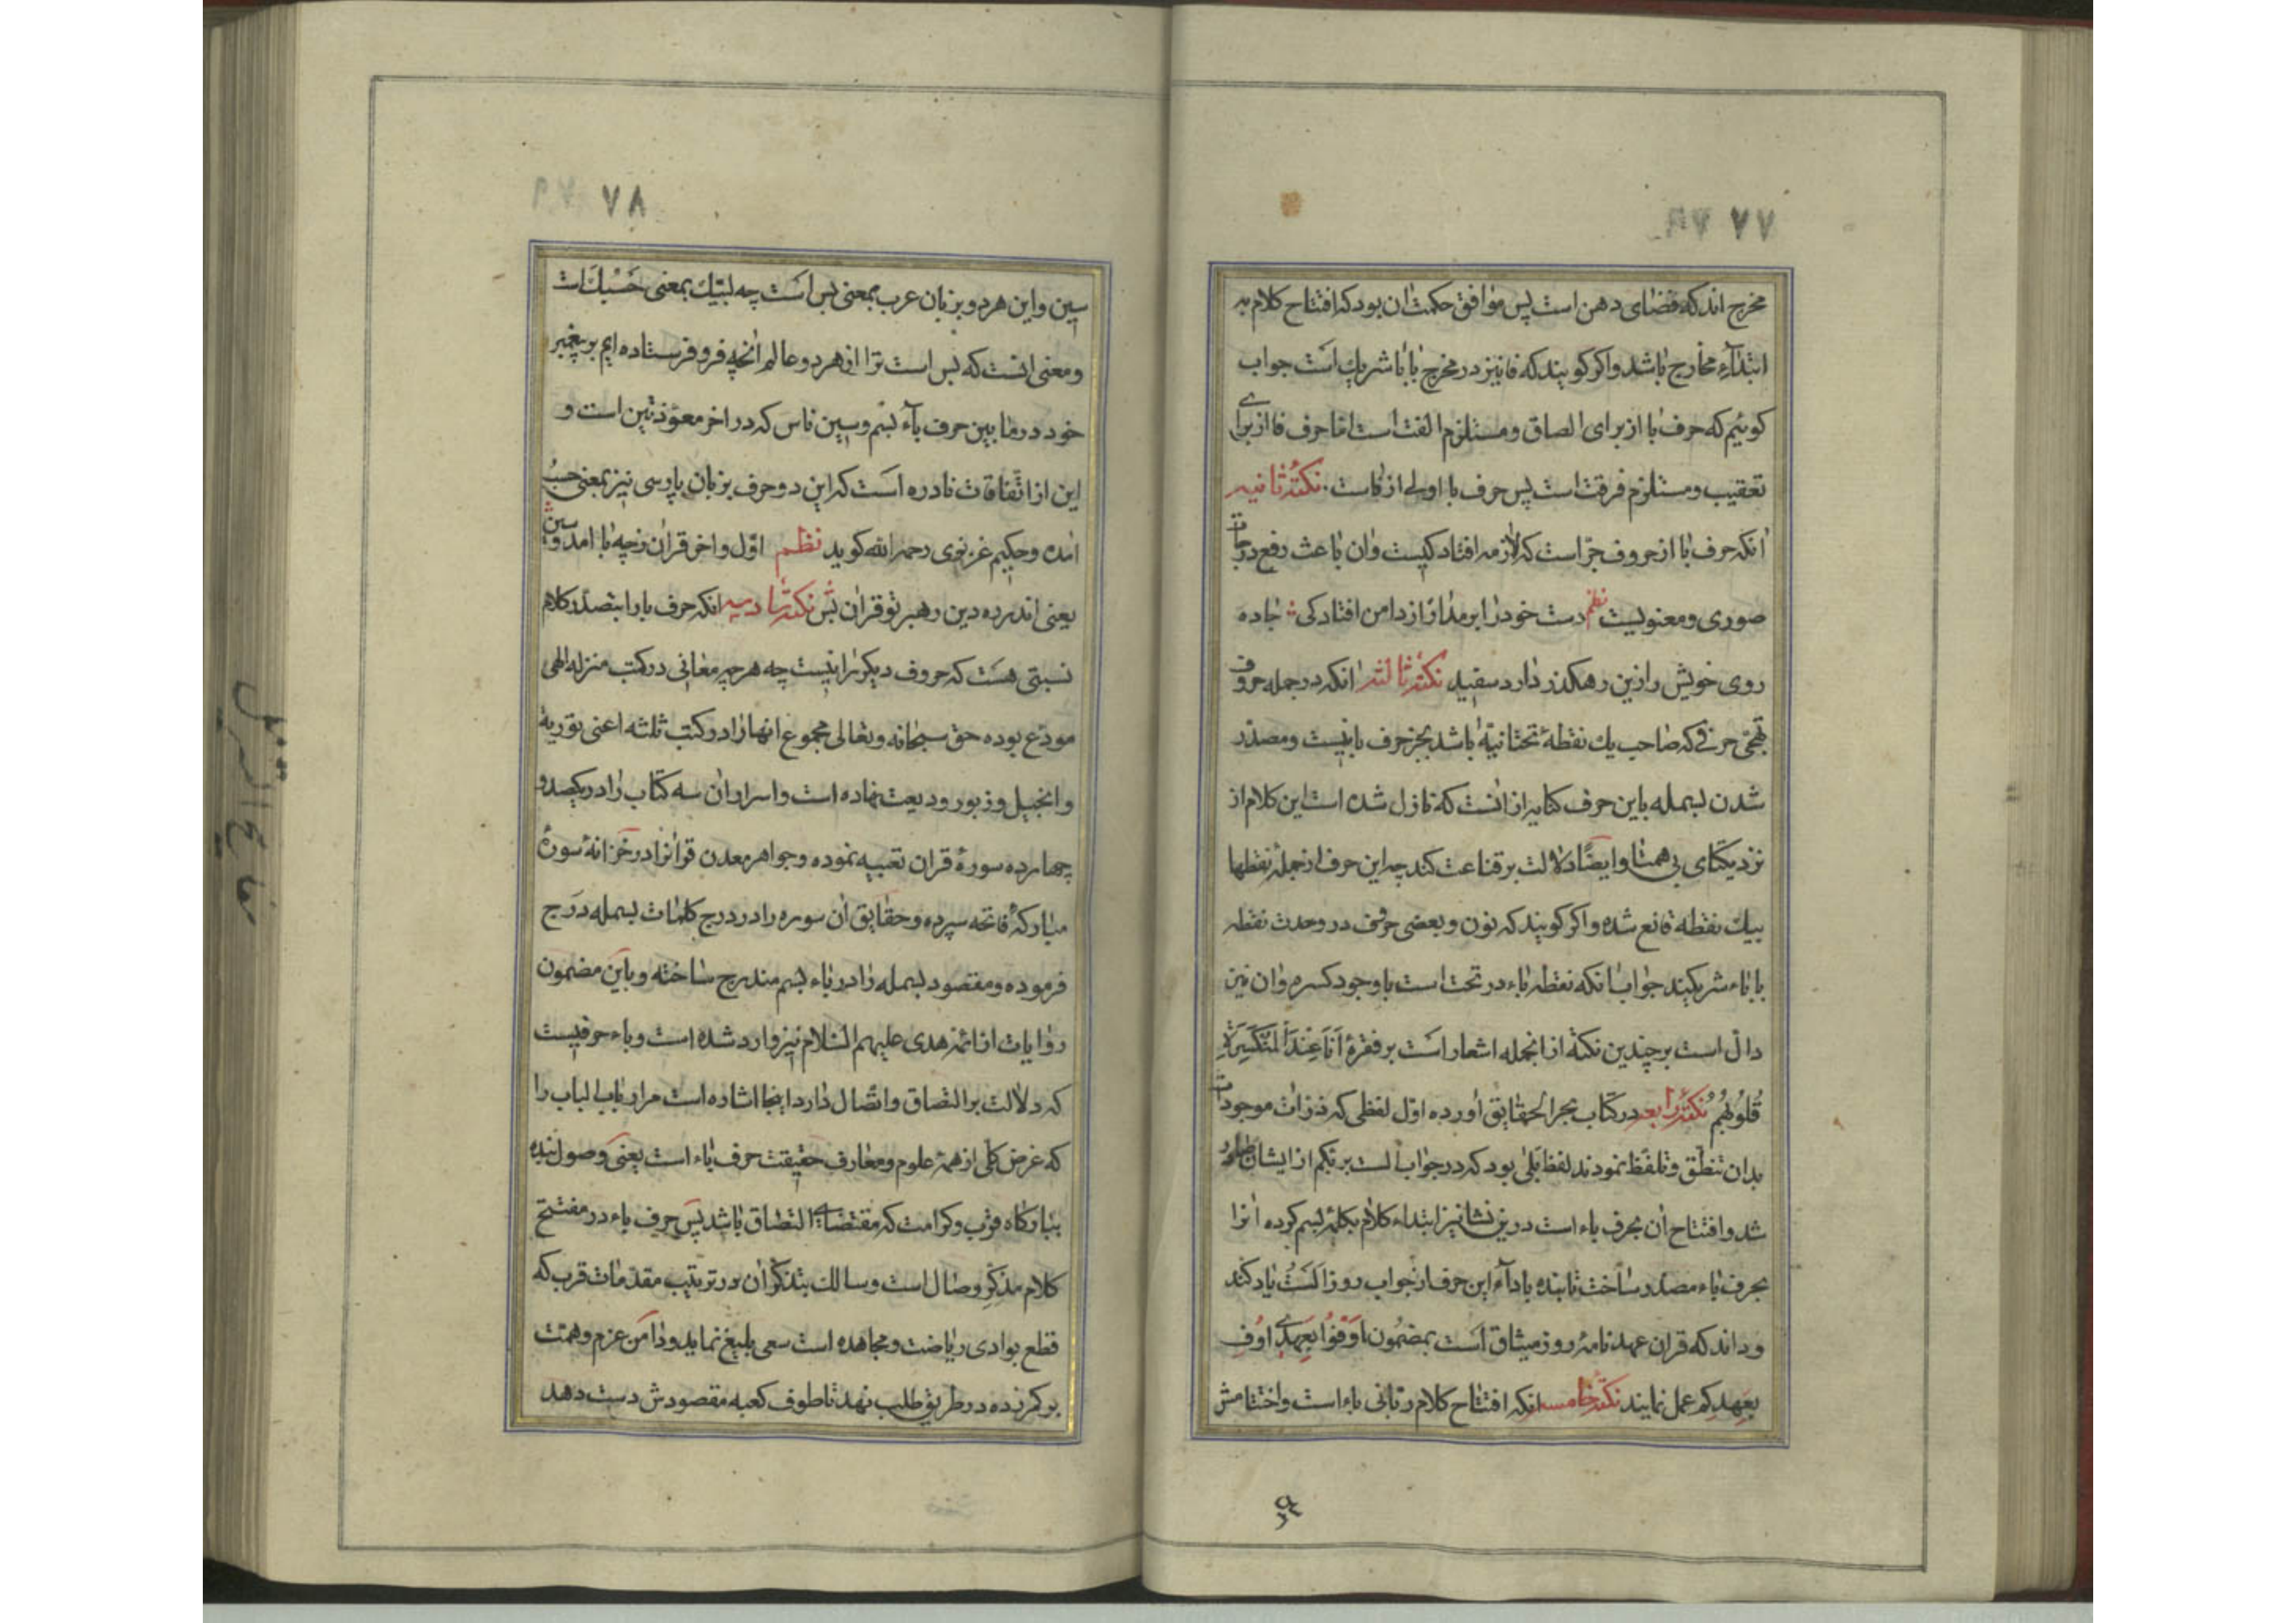 ۷۷
مخرج اند که فضای دهن است پس موافق حکمت ان بود که افتتاح کلام به
ابتداء مخارج باشد واکر کویند که فا نیز در مخرج با با شریك است جواب
کوئیم که حرف با از برای الصاق ومستلزم الفت است اما حرف فا از برای
تعقیب ومستلزم فرقت است پس حرف با اولی از فاست نکته ثانیه
انکه حرف با از حروف جر است که لازمه افتاد کیست وان باعث رفع درجات
صوری ومعنویست نظم دست خود را بر مدار از دامن افتادکی جاده
روی خویش را زین رهکذر دارد سفید نکته ثالثه انکه در جمله حروف
تهجی حرفی که صاحب یك نقطه تحتانیه باشد بجز حرف با نیست ومصدر
شدن بسمله باین حرف کنایه از انست که نازل شده است این کلام از
نزد یکتای بی همتا وایضا دلالت بر قناعت کند چه این حرف از جمله نقطها
بیك نقطه قانع شده واکر کویند که نون وبعضی حرف در وحدت نقطه
با باء شریکند جواب انکه نقطه باء در تحت است با وجود کسره وان نیز
دال است بر چندین نکته از انجمله اشعار است بر فقره اَنَا عِندَ المُنکَسِرَةِ
قُلُوبُهُم نکته رابعه در کتاب بحر الحقایق آورده اول لفظی که ذرات موجودات
بدان تنطق وتلفظ نمودند لفظ بَلی بود که در جواب الست بربکم از ایشان ظاهر
شد وافتتاح ان بحرف باء است درین نشا نیز ابتداء کلام بکلمه بسم کرده انرا
بحرف باء مصدر ساخت تا بنده باداء این حرف از جواب روز اَلَستُ یاد کند
وداند که قران عهد نامه روز میثاق است بمضمون اَوفُوا بِعَهدی اُوفِ
بِعَهدِکم عمل نمایند نکته خامسه انکه افتتاح کلام ربانی باء است واختتامش
۷۸
سین واین هر دو بزبان عرب بمعنی بس است چه لبّیك بمعنی حَسبُك است
ومعنی انست که بس است ترا از هر دو عالم انچه فرو فرستاده ایم بر پیغمبر
خود در ما بین حرف باء بسم وسین ناس که در اخر معوذتین است و
این از اتفاقات نادره است که این دو حرف بزبان پارسی نیز بمعنی حسب
امده وحکیم غزنوی رحمه الله کوید نظم اوّل واخر قران زچه با امد وسین
یعنی اندر ره دین رهبر تو قران بس نکته سادسه انکه حرف با را بتصدر کلام
نسبتی هست که حروف دیکر را نیست چه هر چه معانی در کتب منزله الهی
مودع بوده حق سبحانه وتعالی مجموع انها را در کتب ثلثه اعنی توریة
وانجیل وزبور ودیعت نهاده است واسرار ان سه کتاب را در یکصد و
چهارده سوره قران تعبیه نموده وجواهر معدن قرانرا در خزانه سورهٔ
مبارکه فاتحه سپرده وحقایق ان سوره را در درج کلمات بسمله درج
فرموده ومقصود بسمله را در باء بسم مندرج ساخته وباین مضمون
روایات از ائمه هدی علیهم السلام نیز وارد شده است وباء حرفیست
که دلالت بر التصاق واتصال دارد اینجا اشاره است مر ارباب الباب را
که غرض کلی از همه علوم ومعارف حقیقت حرف باء است یعنی وصول بنده
ببارکاه قرب وکرامت که مقتضای التصاق باشد پس حرف باء در مفتتح
کلام مذکر وصال است وسالك بتذکر ان در ترتیب مقدمات قرب که
قطع بوادی ریاضت ومجاهده است سعی بلیغ نماید ودامن عزم وهمت
بر کمر زده در طریق طلب نهد تا طوف کعبه مقصودش دست دهد